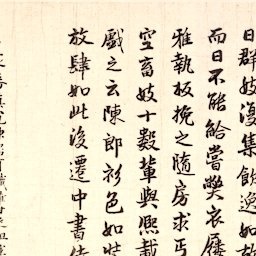 日群妓復集飲逸如故
而日不能給嘗弊衣屩
雅執板挽之隨房求丐
空畜妓十數輩與熙載
戲之云陳郎衫色如裝
放肆如此後遷中書侍